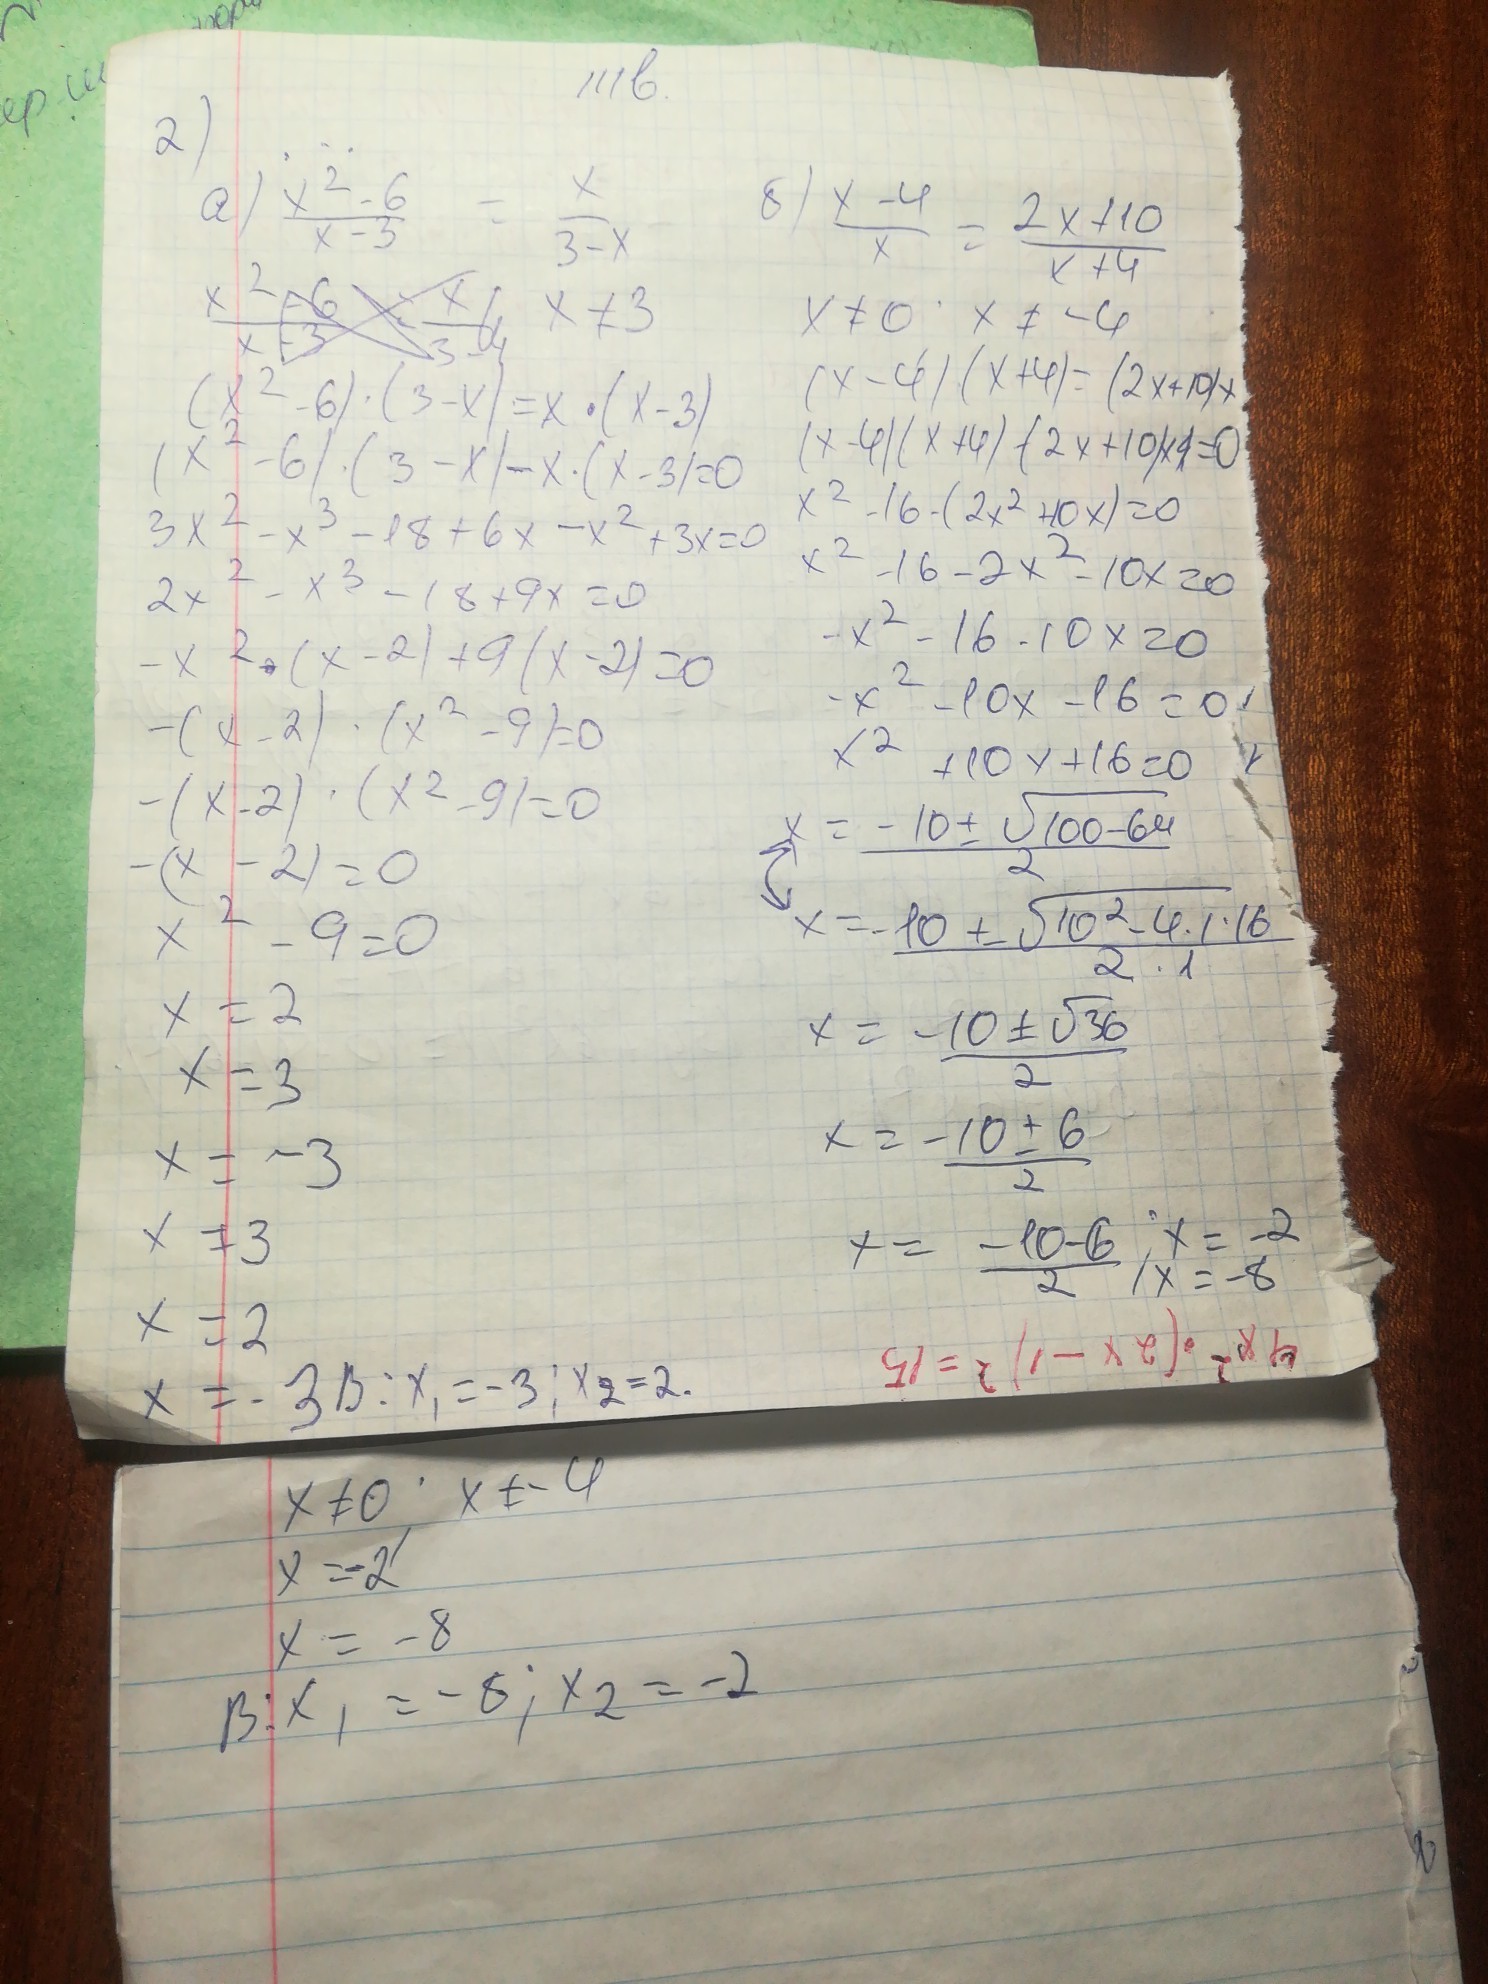 III в.
2)
а) (x² - 6)/(x - 3) = x/(3 - x)
x ≠ 3
(x² - 6) · (3 - x) = x · (x - 3)
(x² - 6) · (3 - x) - x · (x - 3) = 0
3x² - x³ - 18 + 6x - x² + 3x = 0
2x² - x³ - 18 + 9x = 0
-x² · (x - 2) + 9(x - 2) = 0
-(x - 2) · (x² - 9) = 0
-(x - 2) · (x² - 9) = 0
-(x - 2) = 0
x² - 9 = 0
x = 2
x = 3
x = -3
x ≠ 3
x = 2
x = -3 В: x₁ = -3; x₂ = 2.
б) (x - 4)/x = (2x + 10)/(x + 4)
x ≠ 0; x ≠ -4
(x - 4) · (x + 4) = (2x + 10)x
(x - 4)(x + 4) - (2x + 10)x = 0
x² - 16 - (2x² + 10x) = 0
x² - 16 - 2x² - 10x = 0
-x² - 16 - 10x = 0
-x² - 10x - 16 = 0
x² + 10x + 16 = 0
x = (-10 ± √(100 - 64))/2
x = (-10 ± √(10² - 4 · 1 · 16))/(2 · 1)
x = (-10 ± √36)/2
x = (-10 ± 6)/2
x = (-10 - 6)/2; x = -2
x = -8
4x² · (2x - 1)² = 15
x ≠ 0; x ≠ -4
x = -2
x = -8
В: x₁ = -8; x₂ = -2